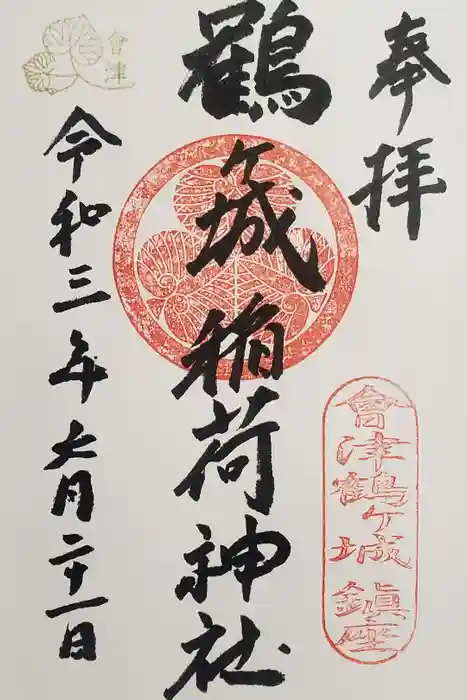 奉拝
會津鶴ヶ城鎮座
鶴ヶ城稲荷神社
令和三年六月二十一日
會津